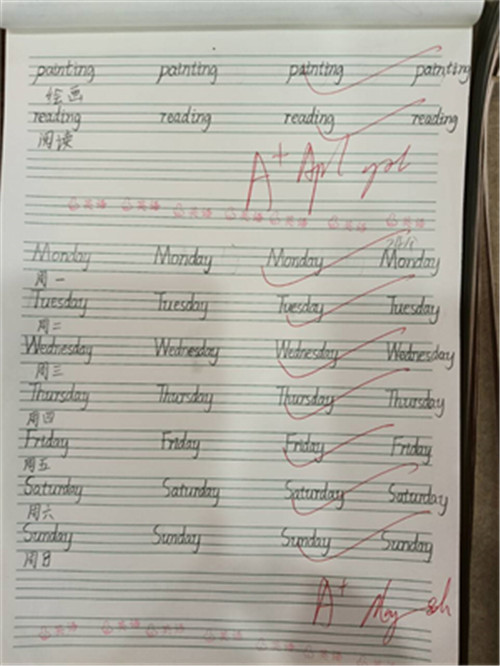 painting painting painting painting
绘画
reading reading reading reading
阅读
A+
英语 英语 英语 英语 英语 英语 英语
Monday Monday Monday Monday
周一
Tuesday Tuesday Tuesday Tuesday
周二
Wednesday Wednesday Wednesday Wednesday
周三
Thursday Thursday Thursday Thursday
周四
Friday Friday Friday Friday
周五
Saturday Saturday Saturday Saturday
周六
Sunday Sunday Sunday Sunday
周日
A+ May 8th
英语 英语 英语 英语 英语 英语 英语